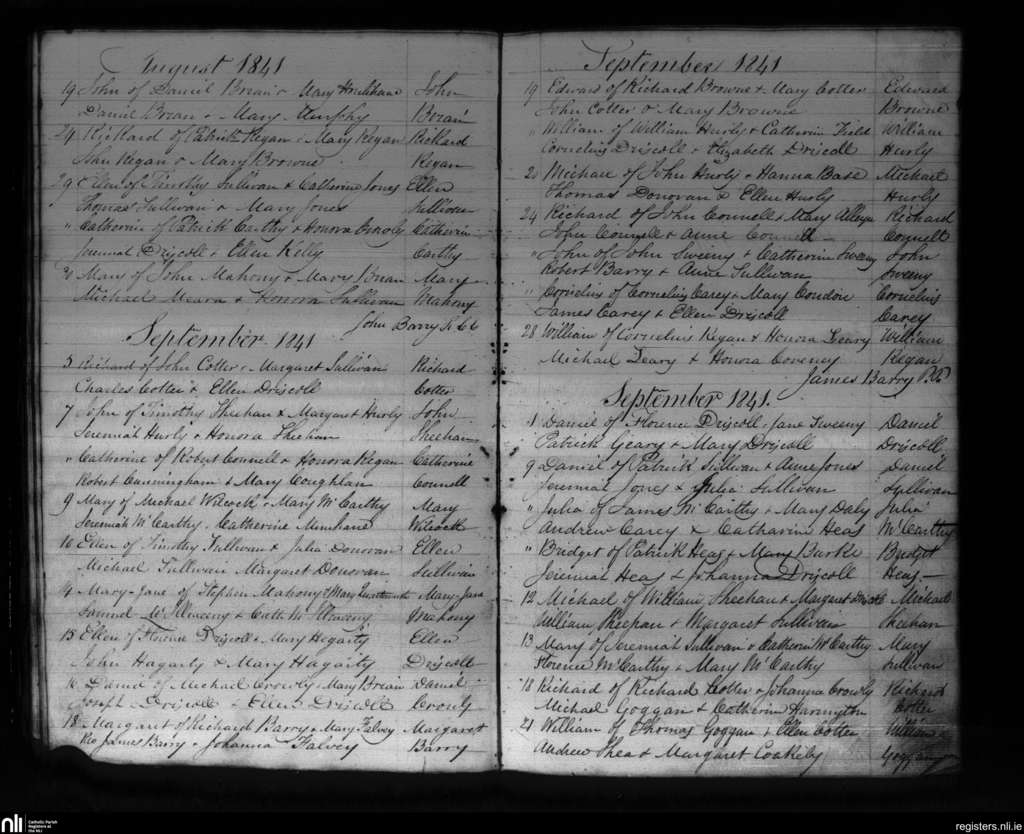 August 1841
19 John of Daniel Brian & Mary Houlihane John
Daniel Brian & Mary Murphy Brian
24 Richard of Patrick Regan & Mary Regan Richard
John Regan & Mary Browne Regan
29 Ellen of Timothy Sullivan & Catherine Jones Ellen
Thomas Sullivan & Mary Jones Sullivan
" Catherine of Patrick Carthy & Honora Catherin
Jeremiah Driscoll & Ellen Kelly Carthy
Mary of John Mahony & Mary Brian Mary
Michael Meara & Honora Sullivan Mahony
John Barry
September 1841
5 Richard of John Cotter & Margaret Sullivan Richard
Charles Cotter & Ellen Driscoll Cotter
7 John of Timothy Sheehan & Margaret Hurly John
Jeremiah Hurly & Honora Sheehan Sheehan
" Catherine of Robert Connell & Honora Regan Catherine
Robert Cunningham & Mary Coughlan Connell
9 Mary of Michael Wilcock & Mary McCarthy Mary
Jeremiah McCarthy & Catherine Minihane Wilcock
10 Ellen of Timothy Sullivan & Julia Donovan Ellen
Michael Sullivan Margaret Donovan Sullivan
14 Mary-Jane of Stephen Mahony & Mary Mary-Jane
Samuel & Cath Mahony
15 Ellen of Florence Driscoll & Mary Hegarty Ellen
John Hagarty & Mary Hagarty Driscoll
16 Daniel of Michael Crowly & Mary Brian Daniel
Joseph Driscoll & Ellen Driscoll Crowly
18 Margaret of Richard Barry & Mary Falvey Margaret
Rev James Barry & Johanna Falvey Barry
September 1841
19 Edward of Richard Browne & Mary Cotter Edward
John Cotter & Mary Browne Browne
" William of William Hurly & Catherin Field William
Cornelius Driscoll & Elizabeth Driscoll Hurly
20 Michael of John Hurly & Hanna Base Michael
Thomas Donovan & Ellen Hurly Hurly
24 Richard of John Connell & Mary Richard
John Connell & Anne Connell Connell
John of John Sweeny & Catherin Sweeny John
Robert Barry & Anne Sullivan Sweeny
" Cornelius of Cornelius Carey & Mary Condon Cornelius
James Carey & Ellen Driscoll Carey
28 William of Cornelius Regan & Honora Leary William
Michael Leary & Honora Coveney Regan
James Barry P.P.
September 1841.
1 Daniel of Florence Driscoll & Jane Sweeny Daniel
Patrick Geary & Mary Driscoll Driscoll
9 Daniel of Patrick Sullivan & Anne Jones Daniel
Jeremiah Jones & Julia Sullivan Sullivan
" Julia of James McCarthy & Mary Daly Julia
Andrew Carey & Catharin Heas McCarthy
" Bridget of Patrick Heas & Mary Burke Bridget
Jeremiah Heas & Johanna Driscoll Heas
12 Michael of William Sheehan & Margaret Driscoll Michael
William Sheehan & Margaret Sullivan Sheehan
13 Mary of Jeremiah Sullivan & Catherin McCarthy Mary
Florence McCarthy & Mary McCarthy Sullivan
18 Richard of Richard Cotter & Johanna Crowly Richard
Michael Goggan & Catherin Harington Cotter
21 William of Thomas Goggan & Ellen Cotter William
Andrew Shea & Margaret Coakeley Goggan
nli
Catholic Parish
Registers at
the NLI
registers.nli.ie